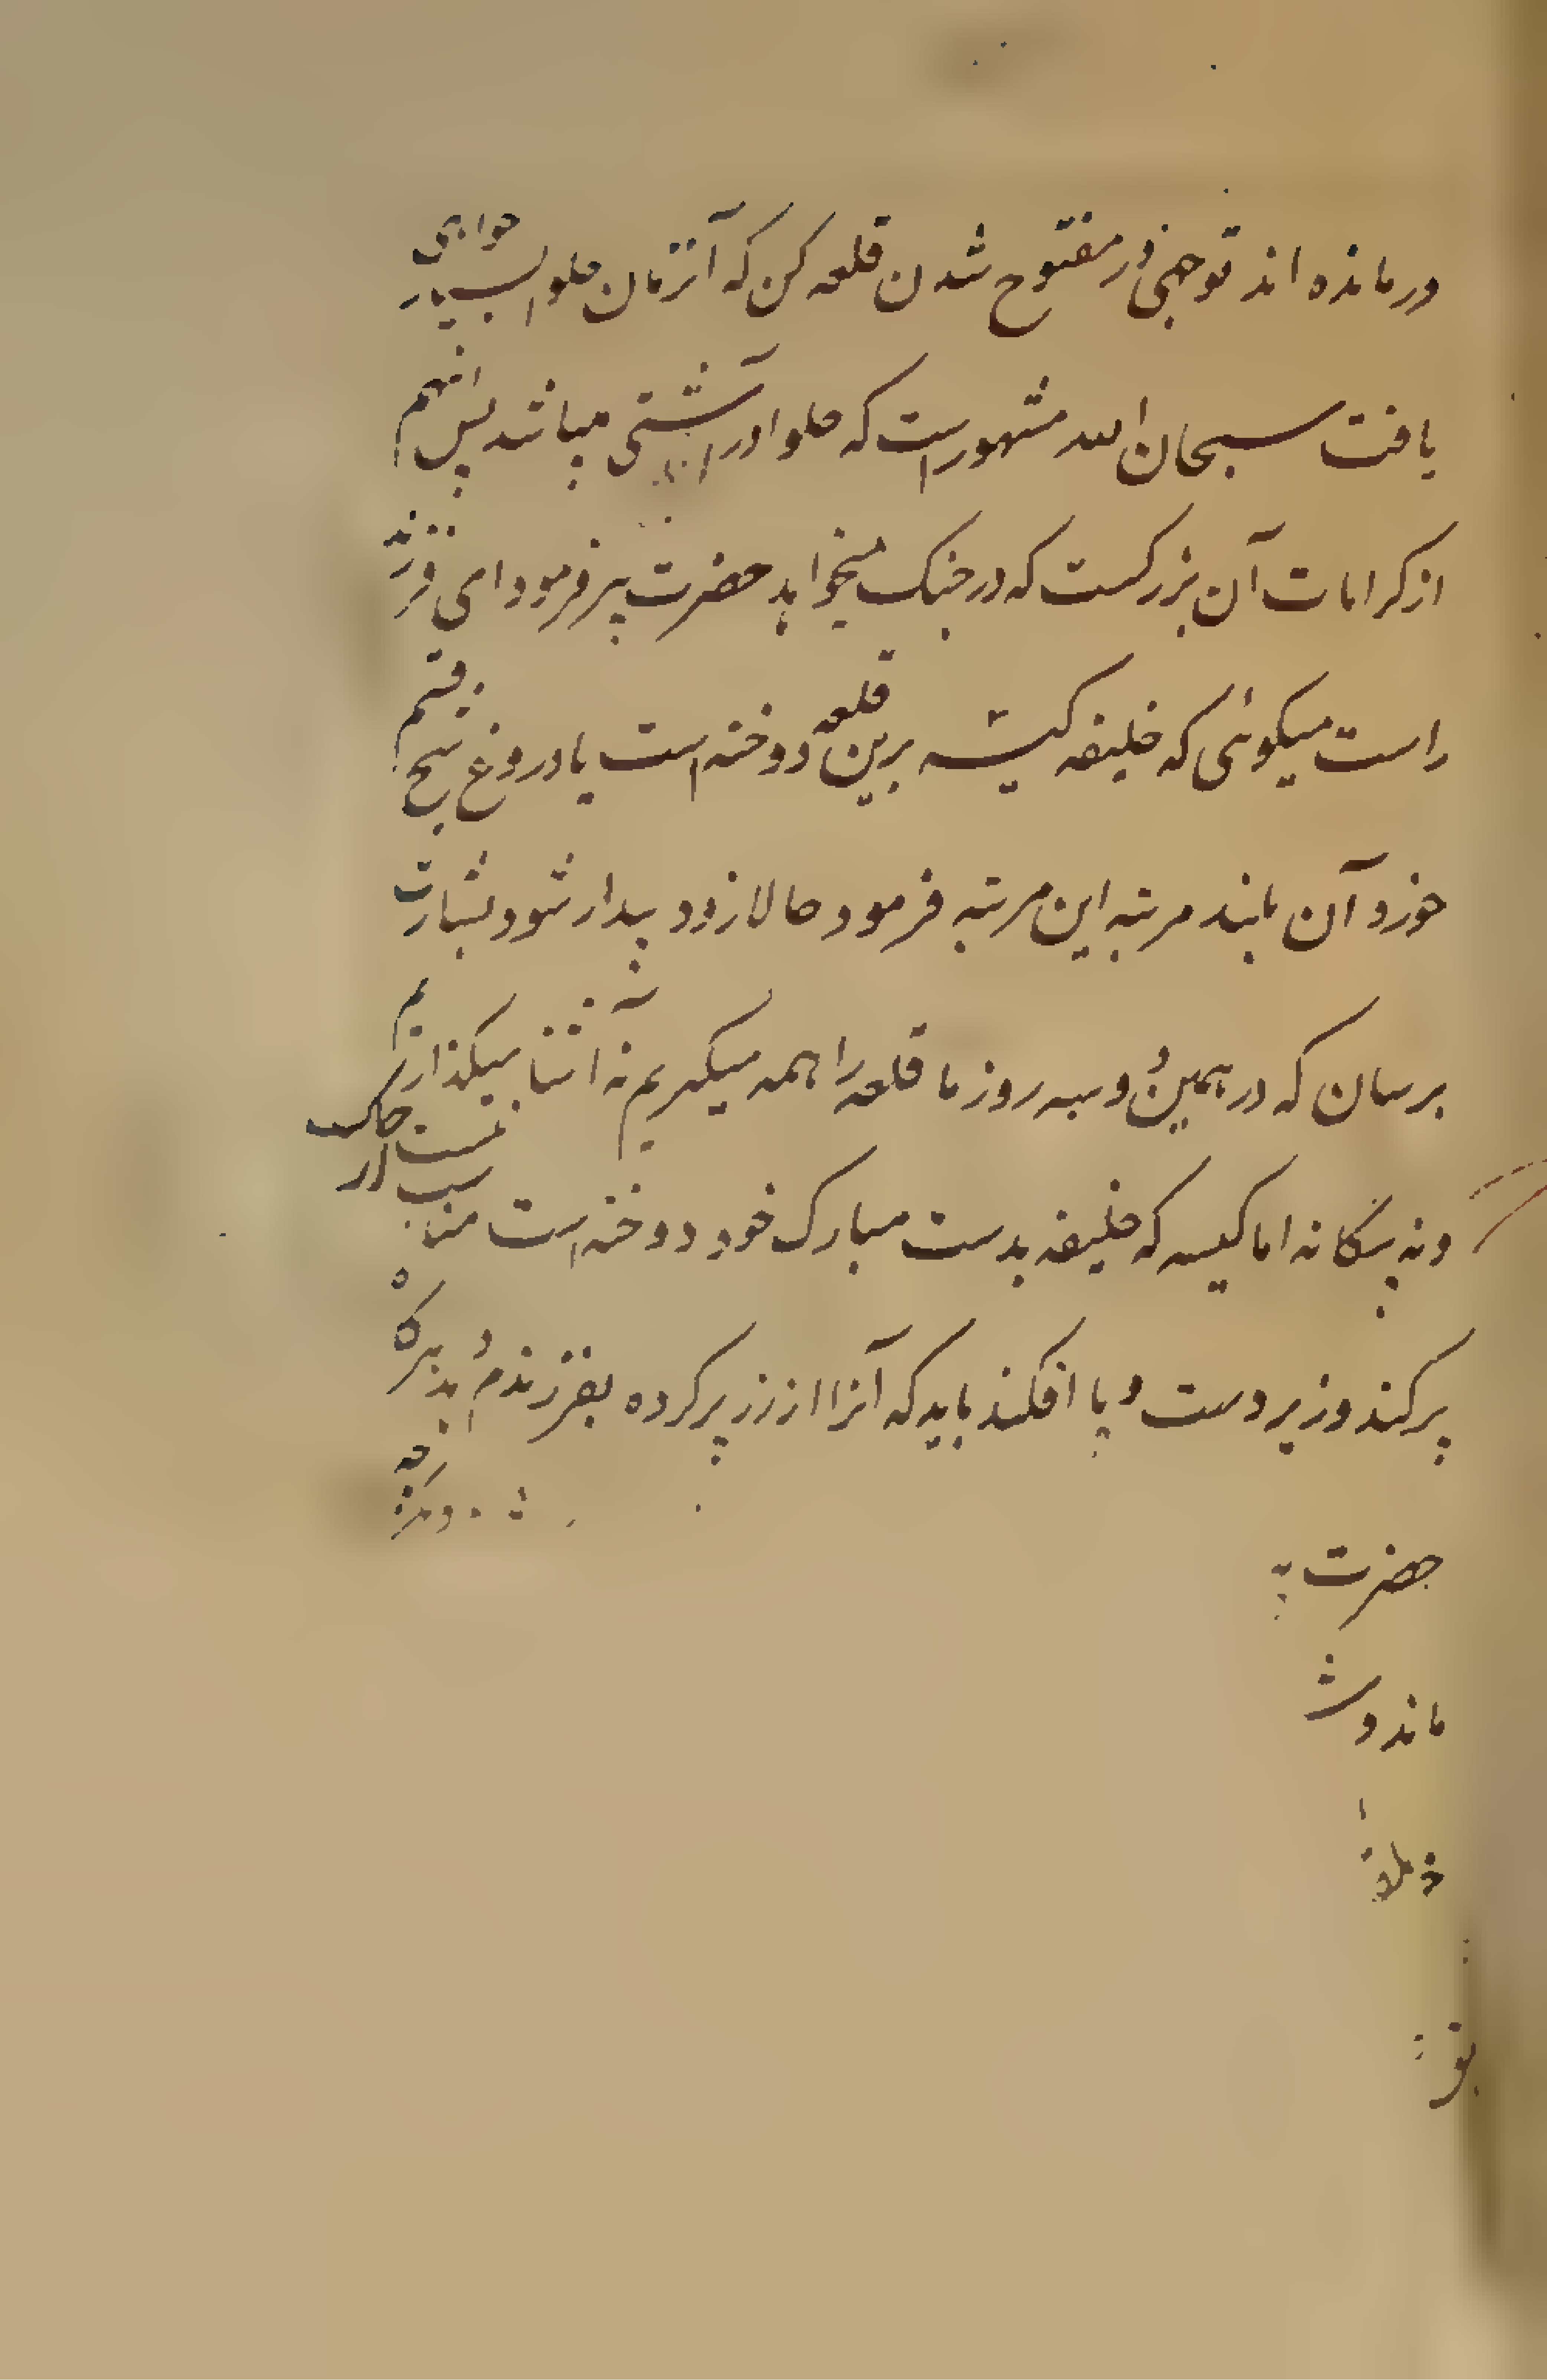 درمانده اند توجهی در مفتوح شدن قلعه کن که آنزمان حلوا بسیار خواهی
یافت سبحان الله مشهور است که حلوا در آشتی میباشد پس اینهم
از کرامات آن بزرگست که در جنگ میخواهد حضرت پیر فرمود ای فرزند
راست میگوئی که خلیفه کیسه برین قلعه دوخته است یا دروغ پنج قسم
خورد آن بلند مرتبه این مرتبه فرمود حالا زود بیدار شو و بشارت
برسان که در همین دو سه روز ما قلعه را همه میگیریم نه آشنا میگذاریم
و نه بیگانه اما کیسه که خلیفه بدست مبارک خود دوخته است مناسب نیست از خاک
پر کند و زیر دست و پا افکند باید که آنرا از زر پر کرده بفرزندم بدهد
حضرت
ماند و